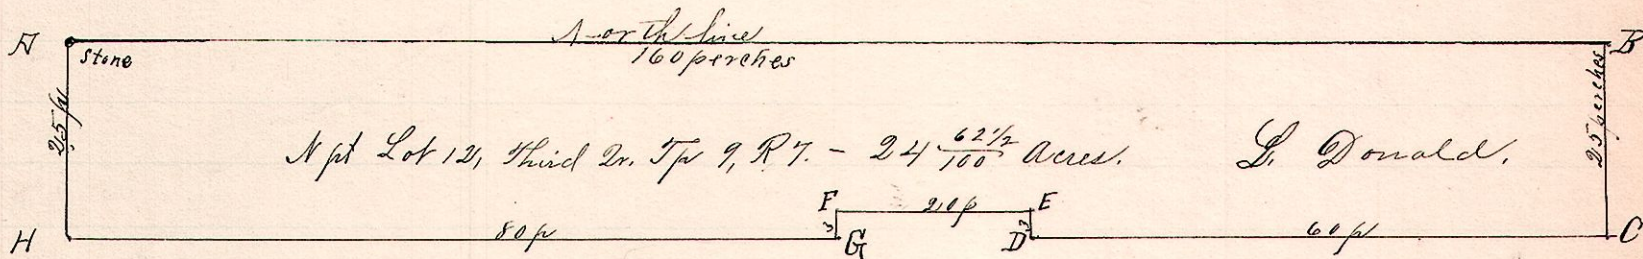 North line
A B
Stone 160 perches
25 p 25 perches
N pt Lot 12, Third Qr. Tp 9, R 7. - 24 62½/100 Acres. L. Donald.
F 20 p E
3 3
H 80 p G D 60 p C